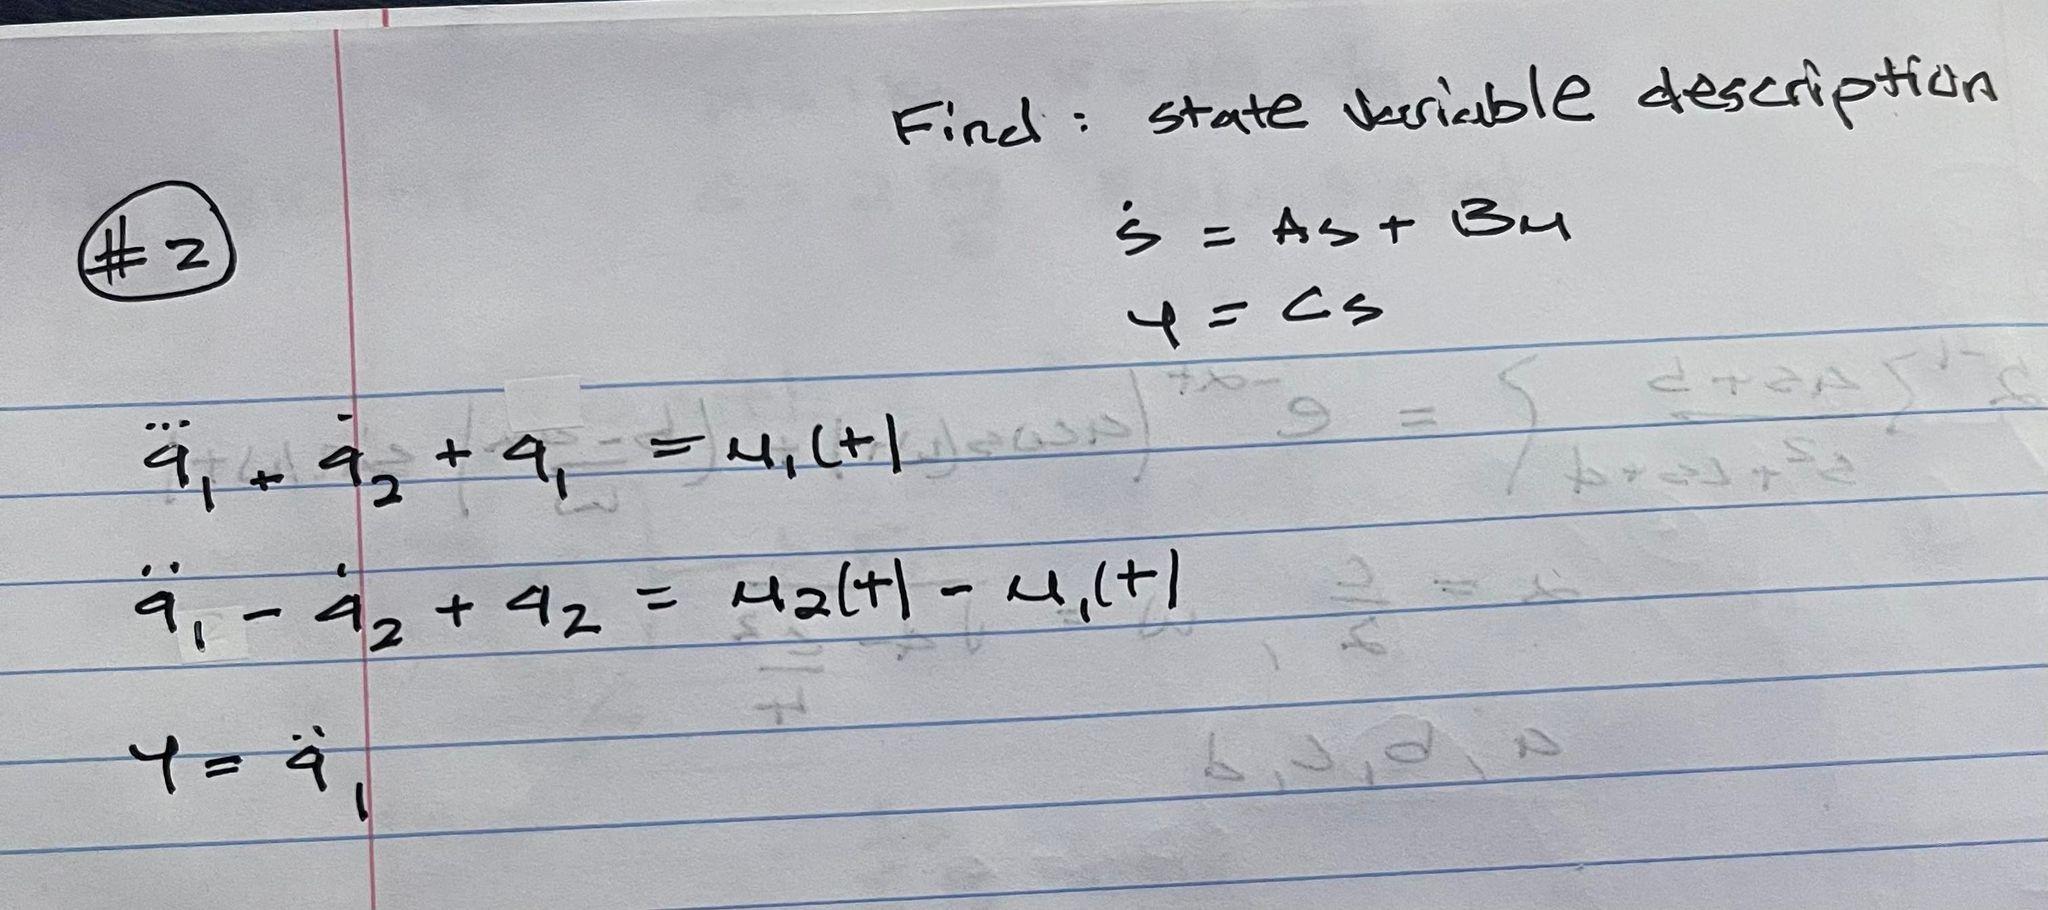 Find: state variable description
#2
ṡ = As + Bu
y = Cs
q⃛₁ + q̇₂ + q₁ = u₁(t)
q̈₁ - q̇₂ + q₂ = u₂(t) - u₁(t)
y = q̈₁